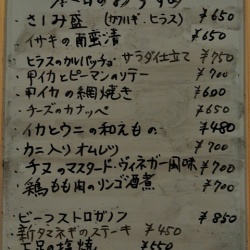 本日のおすすめ
・さしみ盛 (カワハギ、ヒラス) ¥650
イサキの南蛮漬 ¥650
ヒラスのカルパッチョ サラダ仕立て ¥750
・甲イカとピーマンのソテー ¥700
・甲イカの網焼き ¥600
・チーズのカナッペ ¥650
・イカとウニの和えもの ¥480
・カニ入りオムレツ ¥700
・チヌのマスタード・ヴィネガー風味 ¥700
・鶏もも肉のリンゴ酒煮 ¥700
・ビーフストロガノン ¥850
新タマネギのステーキ ¥450
下足の塩焼 ¥550